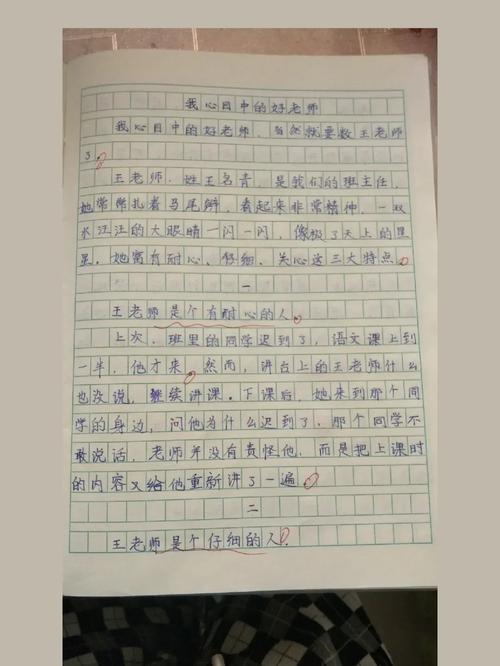 我心目中的好老师
我心目中的好老师，当然就要数王老师
了。
王老师，姓王名青，是我们的班主任，
她常常扎着马尾辫，看起来非常精神，一双
水汪汪的大眼睛一闪一闪，像极了天上的星
星，她富有耐心、仔细、关心这三大特点。
一
王老师是个有耐心的人。
上次，班里的同学迟到了，语文课上到
一半，他才来。然而，讲台上的王老师什么
也没说，继续讲课。下课后，她来到那个同
学的身边，问他为什么迟到了，那个同学不
敢说话，老师并没有责怪他，而是把上课时
的内容又给他重新讲了一遍。
二
王老师是个仔细的人。